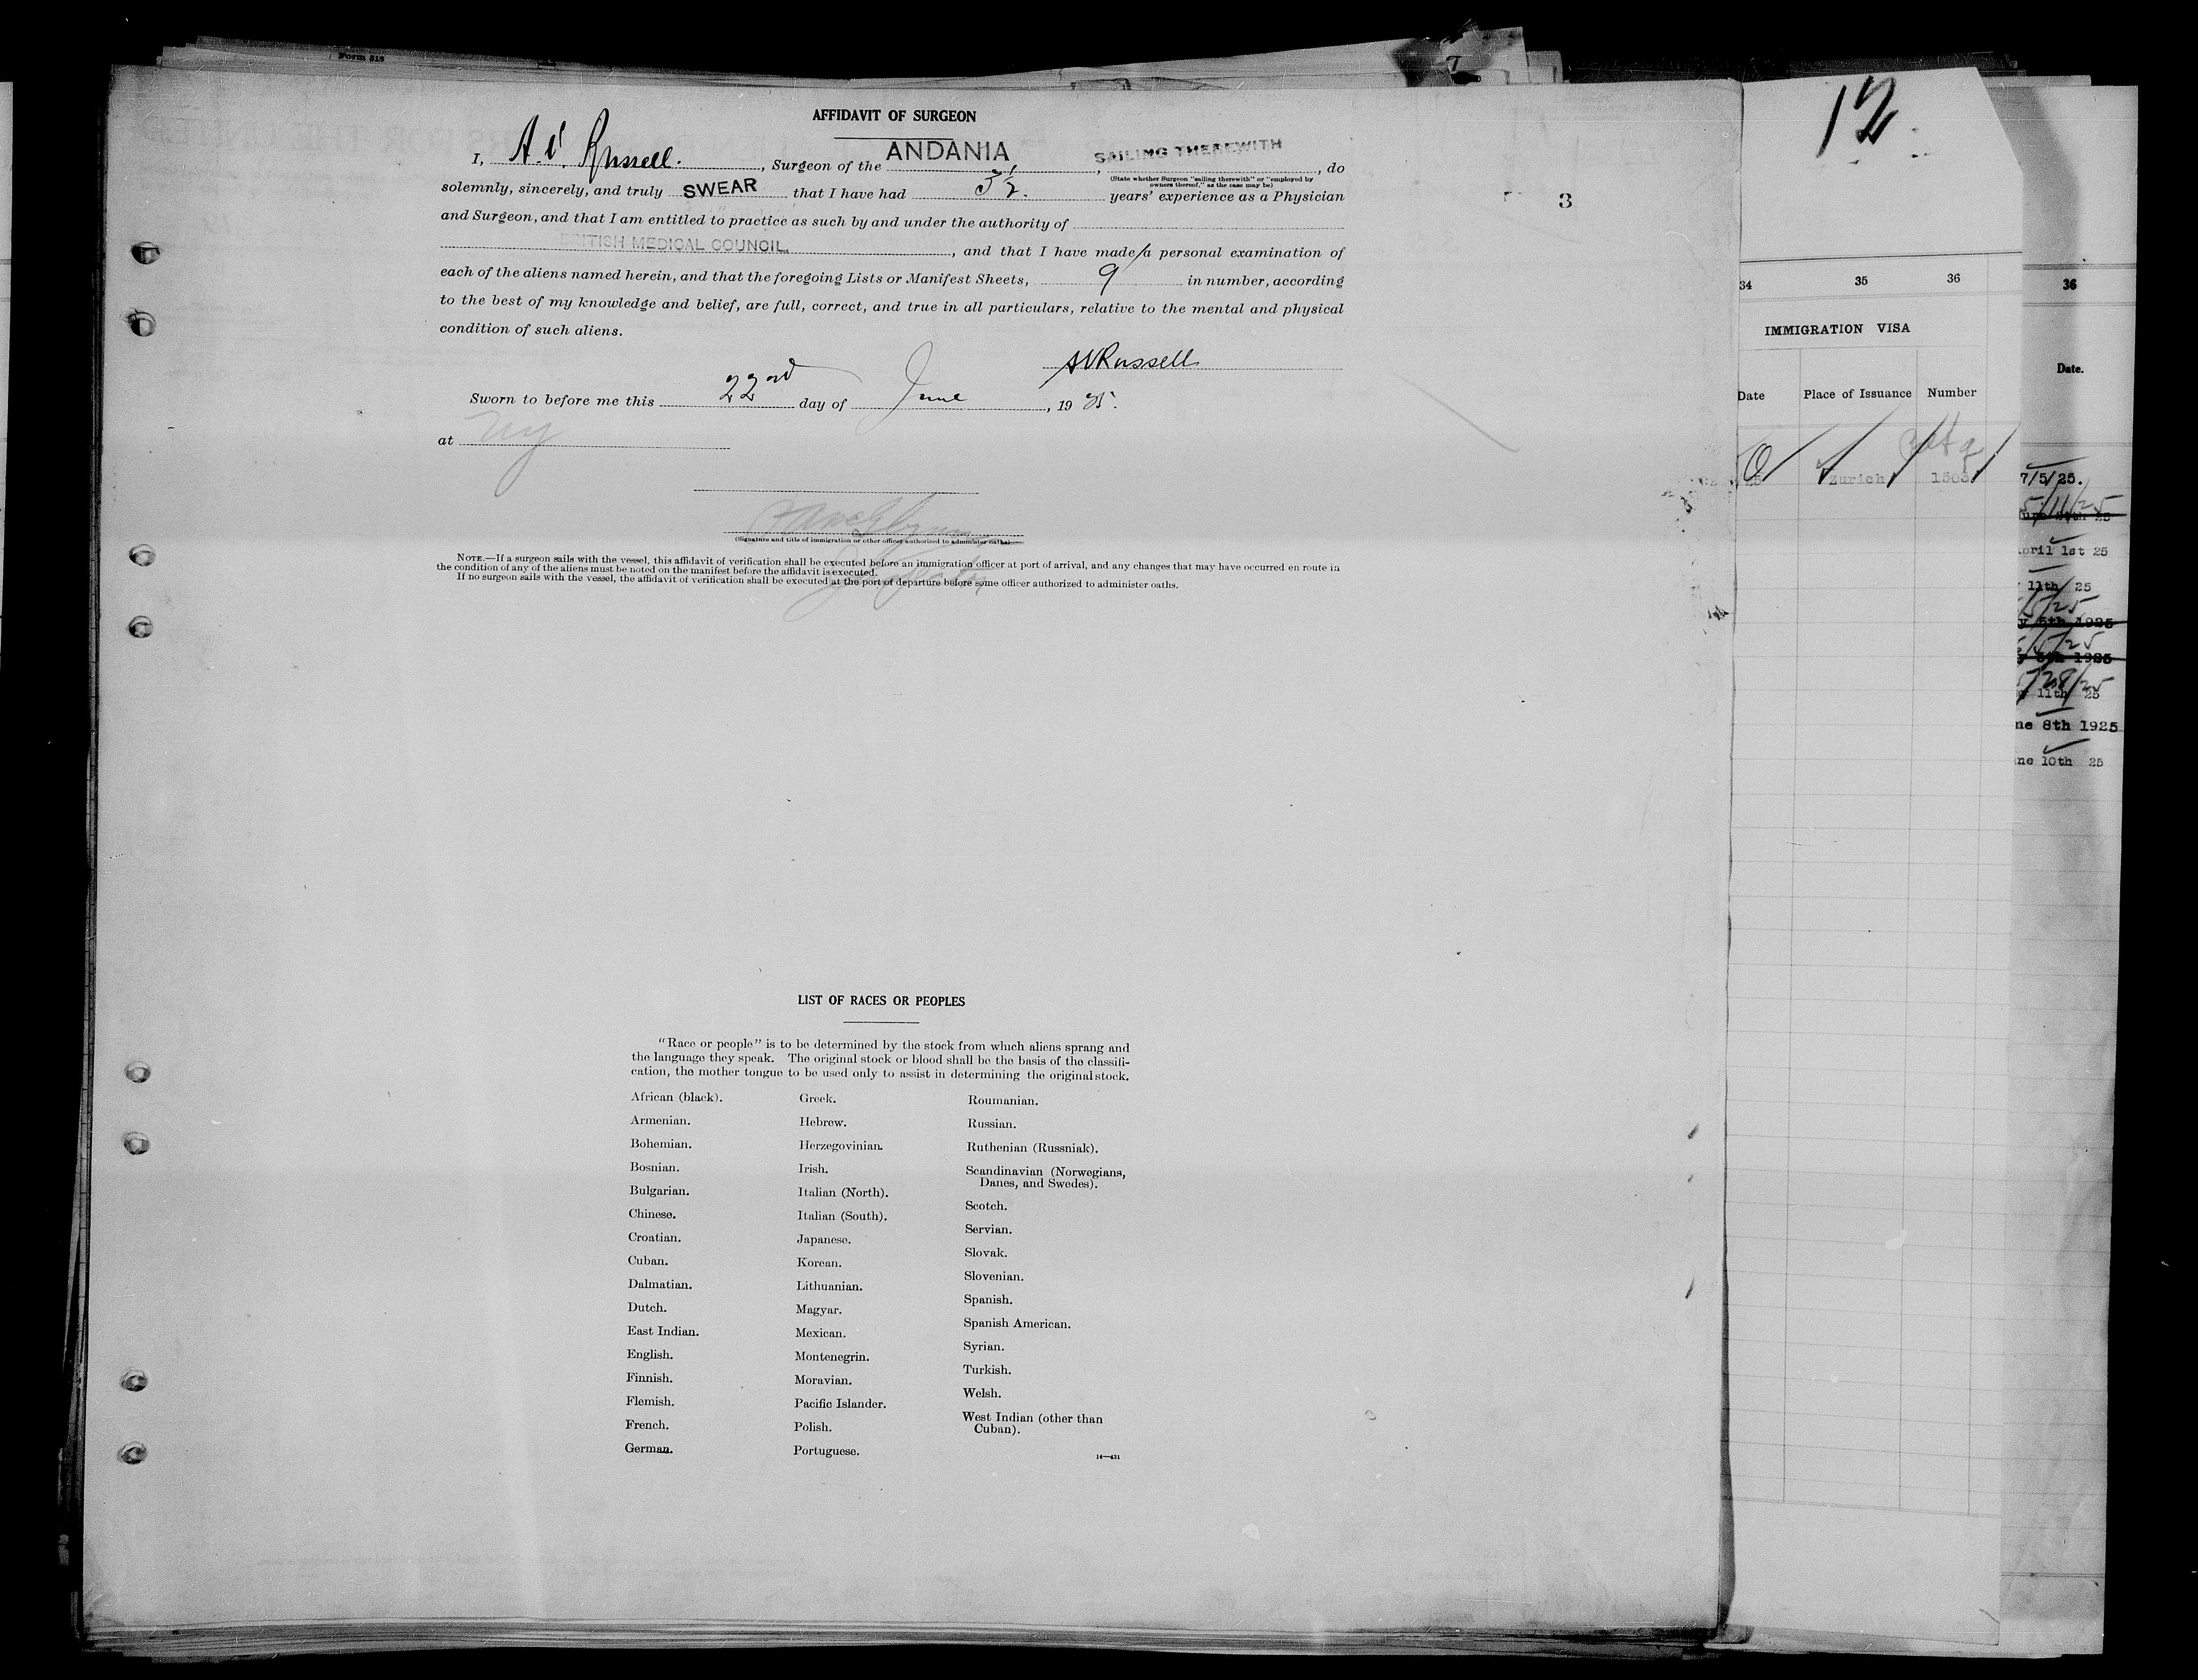 Form 518
AFFIDAVIT OF SURGEON
I, A.V. Russell., Surgeon of the ANDANIA, SAILING THEREWITH, do
(State whether Surgeon "sailing therewith" or "employed by
owners thereof," as the case may be)
solemnly, sincerely, and truly SWEAR that I have had 3½. years' experience as a Physician
and Surgeon, and that I am entitled to practice as such by and under the authority of
BRITISH MEDICAL COUNCIL, and that I have made a personal examination of
each of the aliens named herein, and that the foregoing Lists or Manifest Sheets, 9 in number, according
to the best of my knowledge and belief, are full, correct, and true in all particulars, relative to the mental and physical
condition of such aliens.
AVRussell
Sworn to before me this 22nd day of June, 1925.
at NY
(Signature and title of immigration or other officer authorized to administer oaths)
NOTE.—If a surgeon sails with the vessel, this affidavit of verification shall be executed before an immigration officer at port of arrival, and any changes that may have occurred en route in
the condition of any of the aliens must be noted on the manifest before the affidavit is executed.
If no surgeon sails with the vessel, the affidavit of verification shall be executed at the port of departure before some officer authorized to administer oaths.
3
LIST OF RACES OR PEOPLES
"Race or people" is to be determined by the stock from which aliens sprang and
the language they speak. The original stock or blood shall be the basis of the classifi-
cation, the mother tongue to be used only to assist in determining the original stock.
African (black).
Armenian.
Bohemian.
Bosnian.
Bulgarian.
Chinese.
Croatian.
Cuban.
Dalmatian.
Dutch.
East Indian.
English.
Finnish.
Flemish.
French.
German.
Greek.
Hebrew.
Herzegovinian.
Irish.
Italian (North).
Italian (South).
Japanese.
Korean.
Lithuanian.
Magyar.
Mexican.
Montenegrin.
Moravian.
Pacific Islander.
Polish.
Portuguese.
Roumanian.
Russian.
Ruthenian (Russniak).
Scandinavian (Norwegians,
Danes, and Swedes).
Scotch.
Servian.
Slovak.
Slovenian.
Spanish.
Spanish American.
Syrian.
Turkish.
Welsh.
West Indian (other than
Cuban).
14—431
12
34 35 36
IMMIGRATION VISA
Date Place of Issuance Number
25 Zurich 1503
36
Date.
7/5/25.
5/11/25
April 1st 25
11th 25
5/25
y 5th 1925
5/25
y 5th 1925
5/28/25
11th 25
ne 8th 1925
ne 10th 25